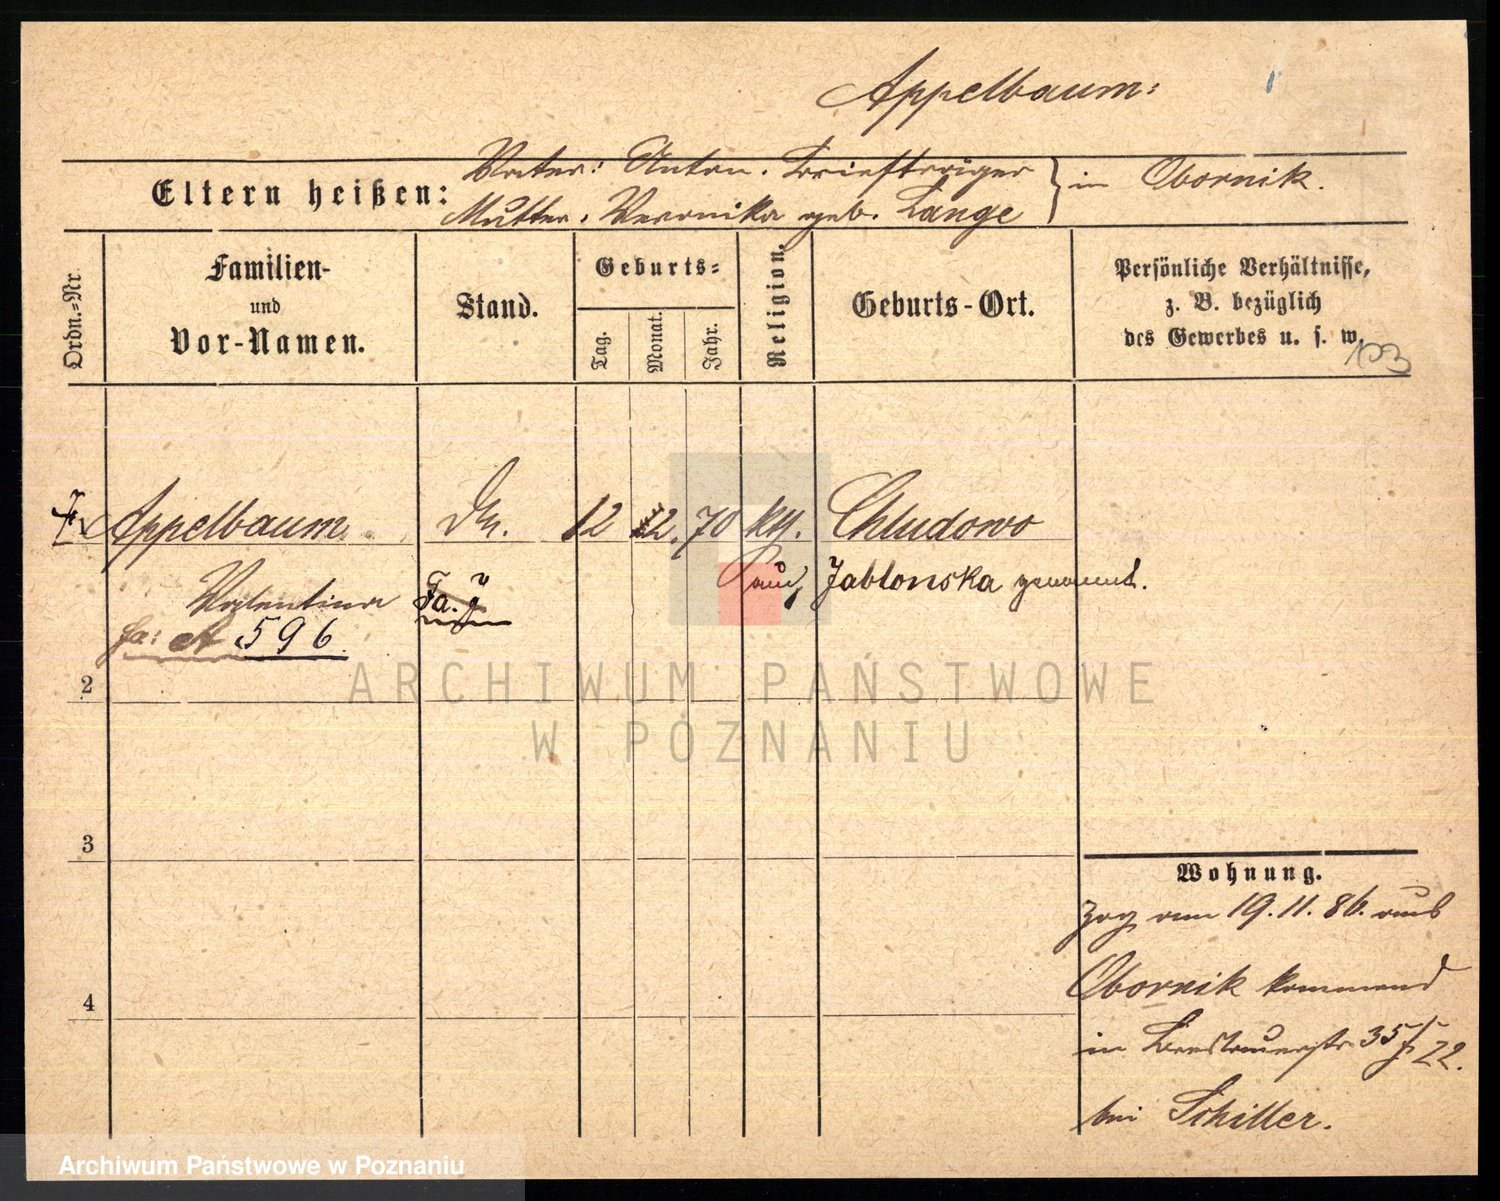 Appelbaum:
Eltern heißen:
Vater: Anton. Briefträger
Mutter: Veronika geb. Lange
in Obornik.
Ordn.-Nr.
Familien-
und
Vor-Namen.
Stand.
Geburts-
Tag.
Monat.
Jahr.
Religion.
Geburts-Ort.
Persönliche Verhältnisse,
z. B. bezüglich
des Gewerbes u. s. w.
103
Appelbaum
12 12. 70 kth. Chludowo
Valentina
auch Jablonska genannt.
Fa: A 596
2
ARCHIWUM PAŃSTWOWE
W POZNANIU
3
Wohnung.
Zog am 19.11.86. aus
4
Obornik kommend
in 35/22.
bei Schiller.
Archiwum Państwowe w Poznaniu